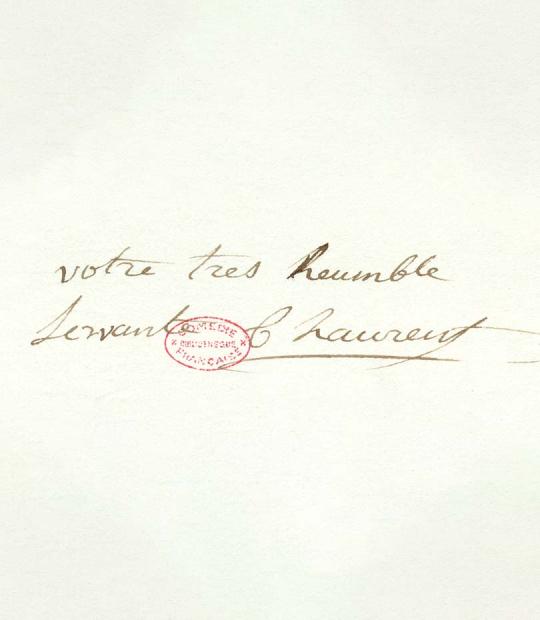 votre tres heumble
servante C Laurent
COMÉDIE
BIBLIOTHEQUE
FRANÇAISE